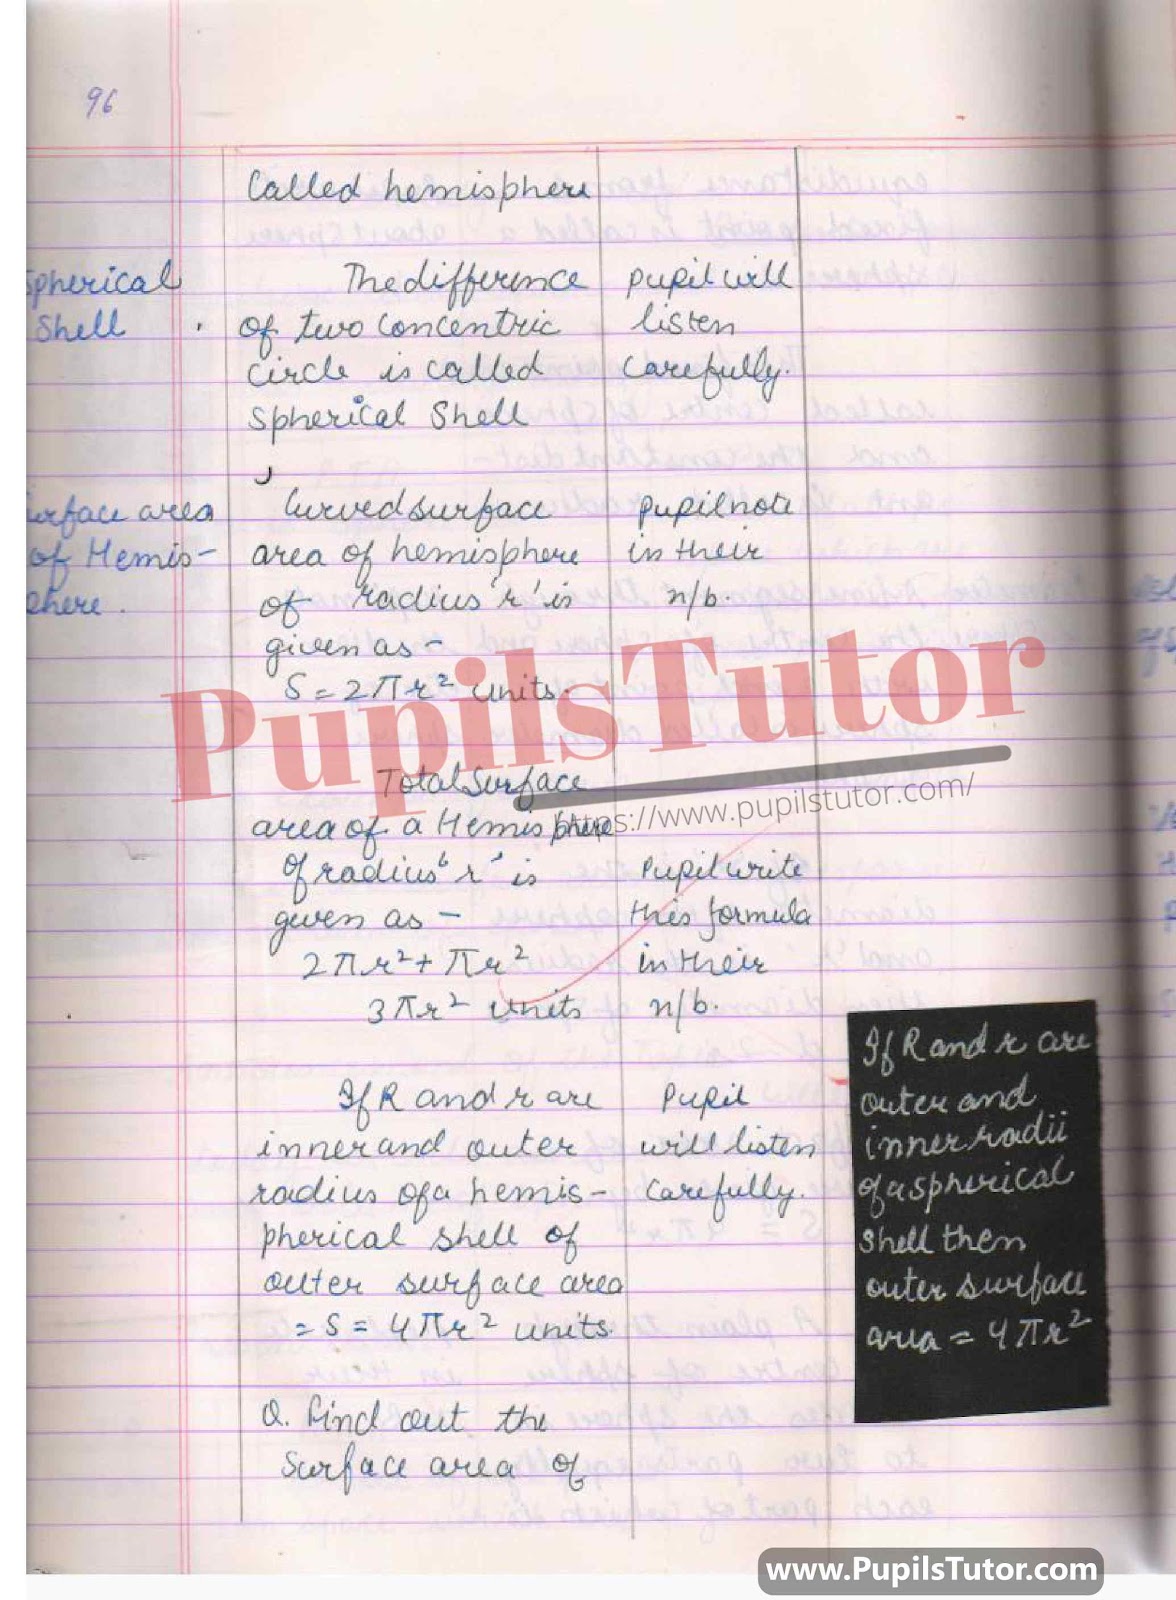 96
Called hemisphere
Spherical
Shell
The difference
of two concentric
circle is called
Spherical Shell
pupil will
listen
carefully.
Surface area
of Hemis-
phere.
Curved surface
area of hemisphere
of radius 'r' is
given as -
S = 2πr² units.
pupil note
in their
n/b.
Total Surface
area of a Hemisphere
of radius 'r' is
given as -
2πr² + πr²
3πr² units
Pupil write
this formula
in their
n/b.
If R and r are
inner and outer
radius of a hemis-
pherical shell of
outer surface area
= S = 4πr² units.
Pupil
will listen
carefully.
If R and r are
outer and
inner radii
of a spherical
shell then
outer surface
area = 4πr²
Q. Find out the
surface area of
PupilsTutor
https://www.pupilstutor.com/
www.PupilsTutor.com